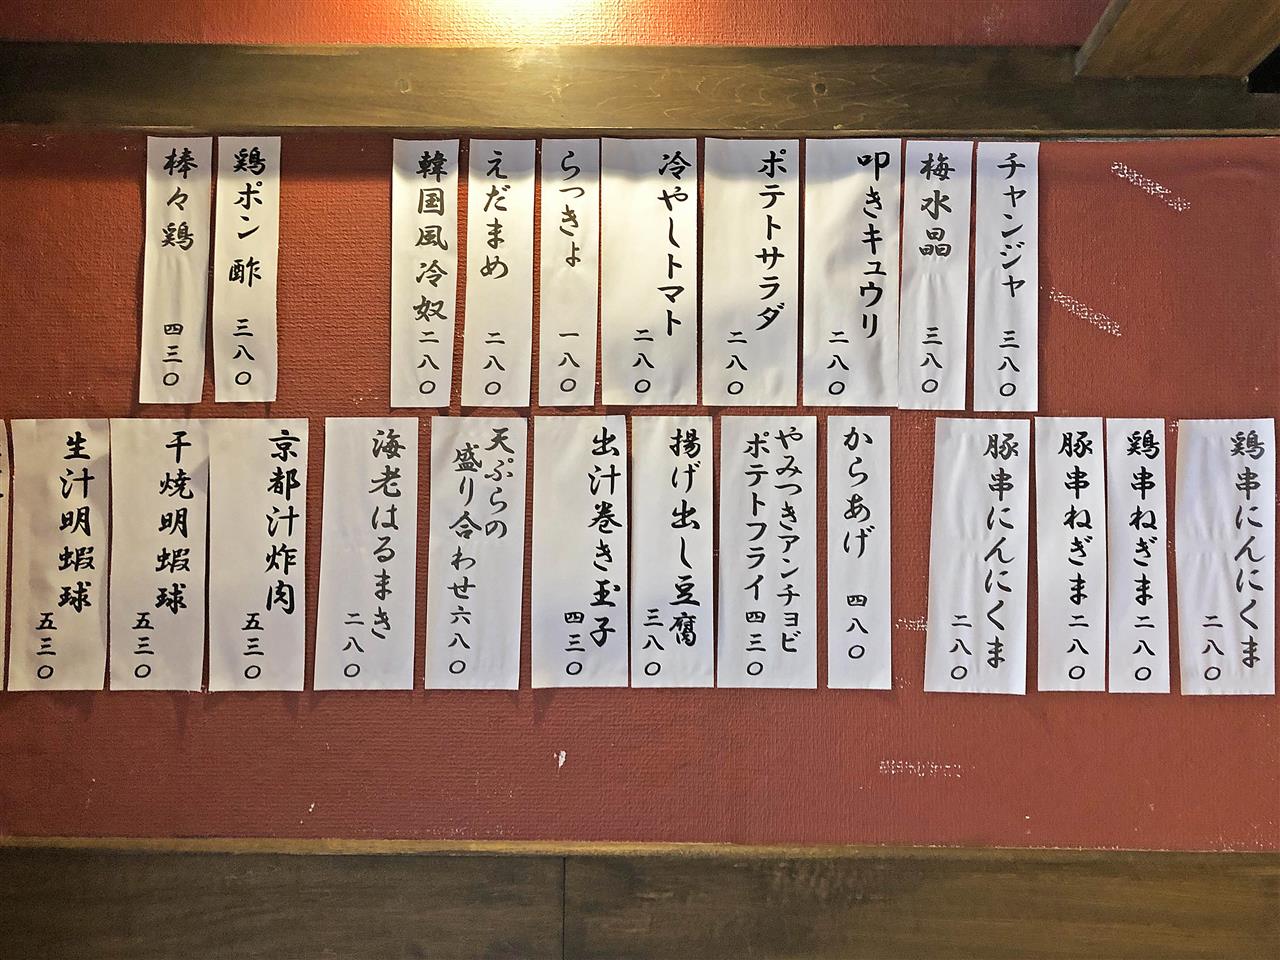 チャンジャ 三八〇
梅水晶 三八〇
叩きキュウリ 二八〇
ポテトサラダ 二八〇
冷やしトマト 二八〇
らっきょ 一八〇
えだまめ 二八〇
韓国風冷奴 二八〇
鶏ポン酢 三八〇
棒々鶏 四三〇
鶏串にんにくま 二八〇
鶏串ねぎま 二八〇
豚串ねぎま 二八〇
豚串にんにくま 二八〇
からあげ 四八〇
やみつきアンチョビ
ポテトフライ 四三〇
揚げ出し豆腐 三八〇
出汁巻き玉子 四三〇
天ぷらの
盛り合わせ 六八〇
海老はるまき 二八〇
京都汁炸肉 五三〇
干焼明蝦球 五三〇
生汁明蝦球 五三〇